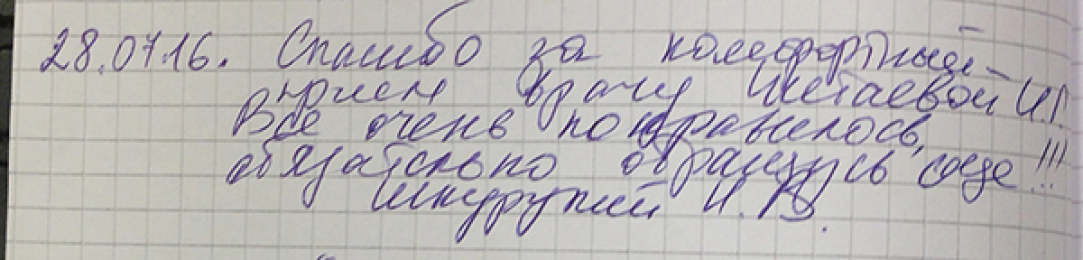 28.07.16. Спасибо за комфортный
прием врачу Шетаевой И.Г.
Все очень понравилось,
обязательно обращусь еще!!!
Шкурупий И.В.